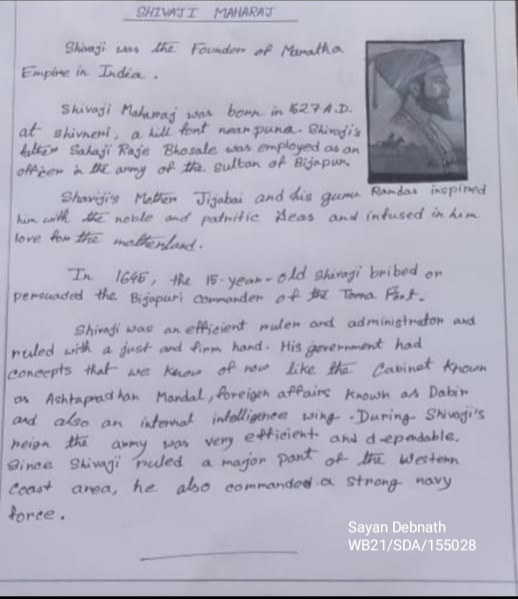 SHIVAJI MAHARAJ
Shivaji was the Founder of Maratha
Empire in India.
Shivaji Maharaj was born in 1627 A.D.
at shivneri, a hill fort near puna. Shivaji's
father Sahaji Raje Bhosale was employed as an
officer in the army of the Sultan of Bijapur.
Shaviji's Mother Jijabai and his guru Ramdas inspired
him with the noble and patriotic ideas and infused in him
love for the motherland.
In 1645, the 15-year-old Shivaji bribed or
persuaded the Bijapuri commander of the Torna Fort.
Shivaji was an efficient ruler and administrator and
ruled with a just and firm hand. His government had
concepts that we know of now like the Cabinet known
as Ashtapradhan Mandal, foreign affairs known as Dabir
and also an internal intelligence wing. During Shivaji's
reign the army was very efficient and dependable.
Since Shivaji ruled a major part of the Western
Coast area, he also commanded a strong navy
force.
Sayan Debnath
WB21/SDA/155028